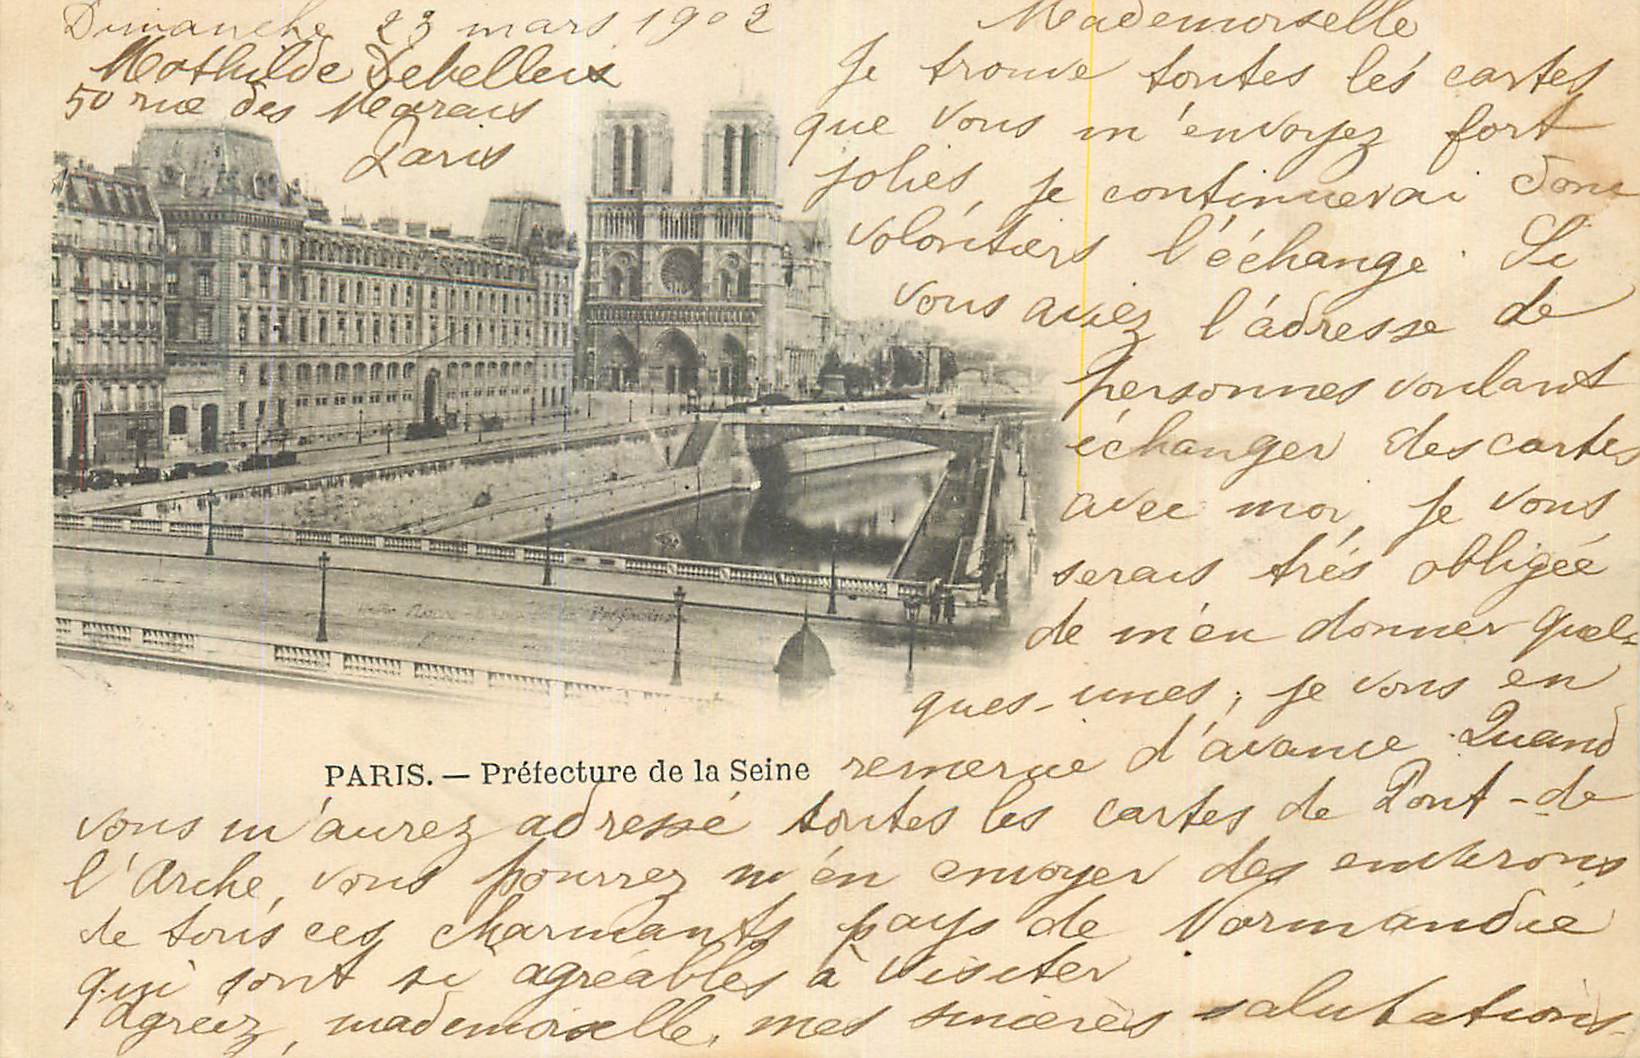 Dimanche 23 mars 1902
Mathilde Debelleix
50 rue des Marais
Paris
Mademoiselle
Je trouve toutes les cartes
que vous m'envoyez fort
jolies, je continuerai donc
volontiers l'échange. Si
vous aviez l'adresse de
personnes voulant
échanger des cartes
avec moi, je vous
serais très obligée
de m'en donner quel-
ques-unes, je vous en
remercie d'avance. Quand
PARIS. — Préfecture de la Seine
vous m'aurez adressé toutes les cartes de Pont-de
l'Arche, vous pourrez m'en envoyer des environs
de tous ces charmants pays de Normandie
qui sont si agréables à visiter
Agréez, mademoiselle, mes sincères salutations.